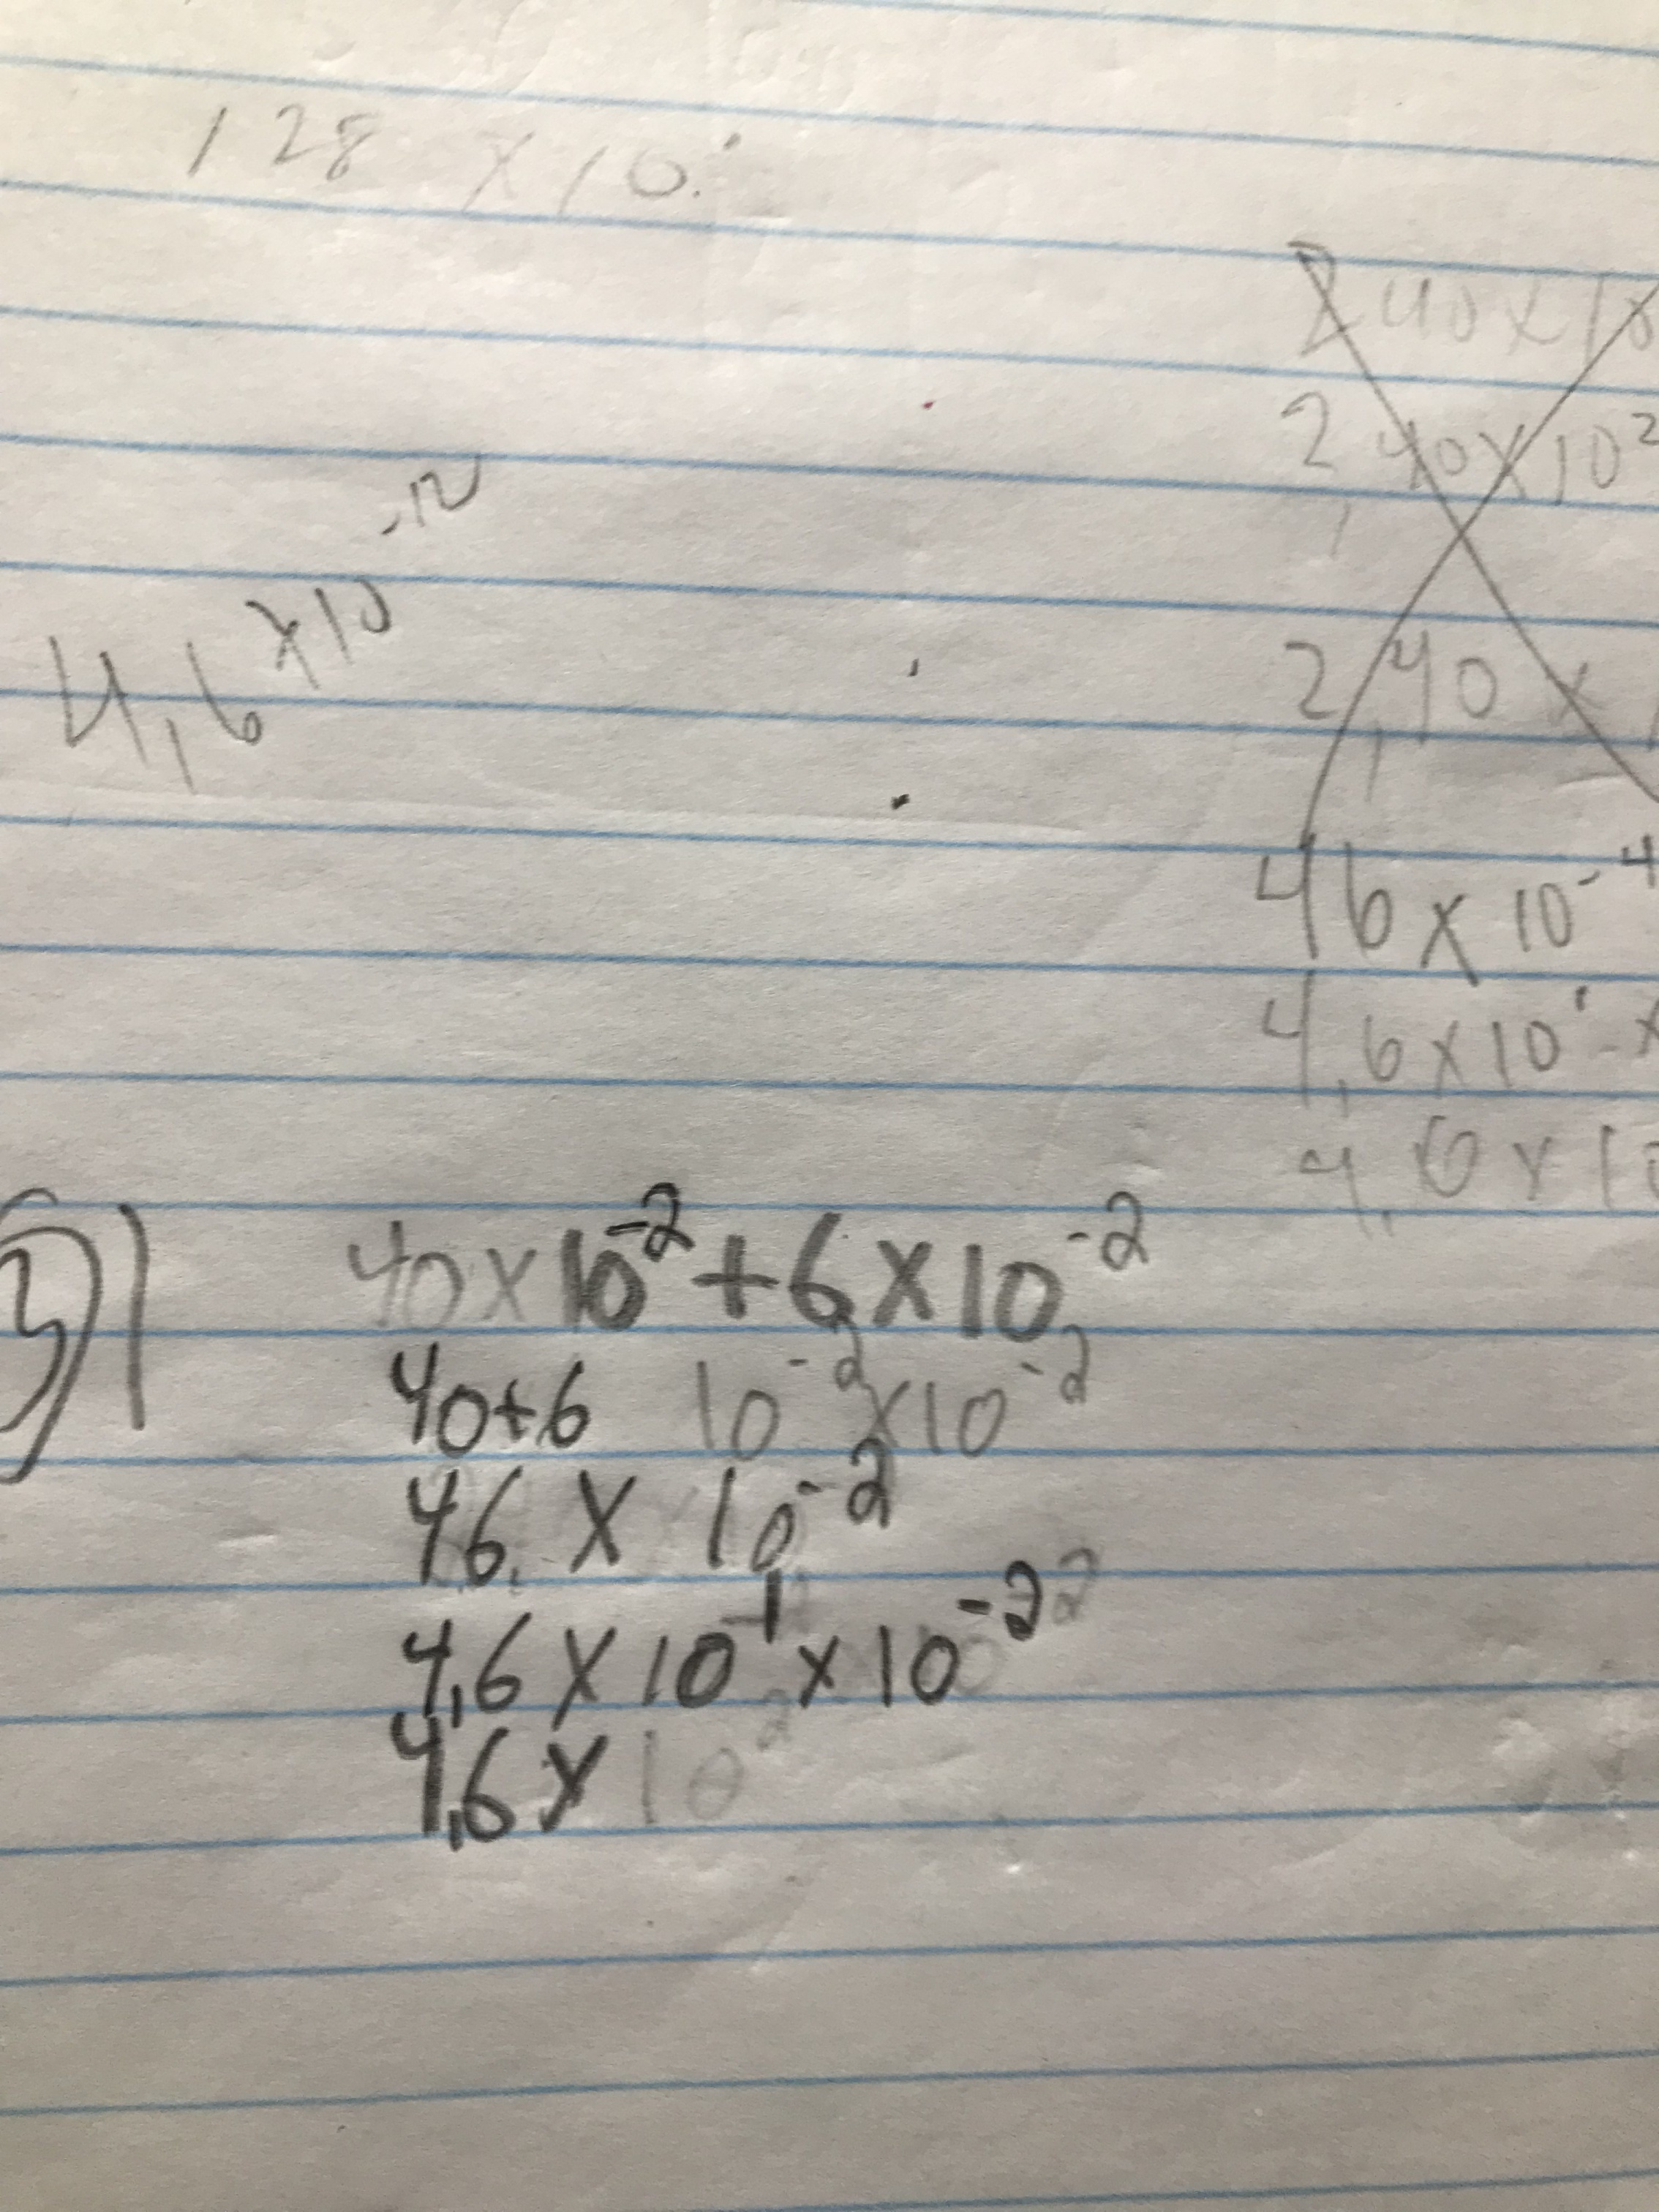 128 × 10
240 × 10
2 40 × 10²
2,40 ×
4,6 × 10⁻¹²
46 × 10⁻⁴
4,6 × 10¹ ×
4,6 × 10
3)
40 × 10⁻² + 6 × 10⁻²
40+6 10⁻² × 10⁻²
46 × 10⁻²
4,6 × 10⁻¹ × 10⁻²
4,6 × 10²